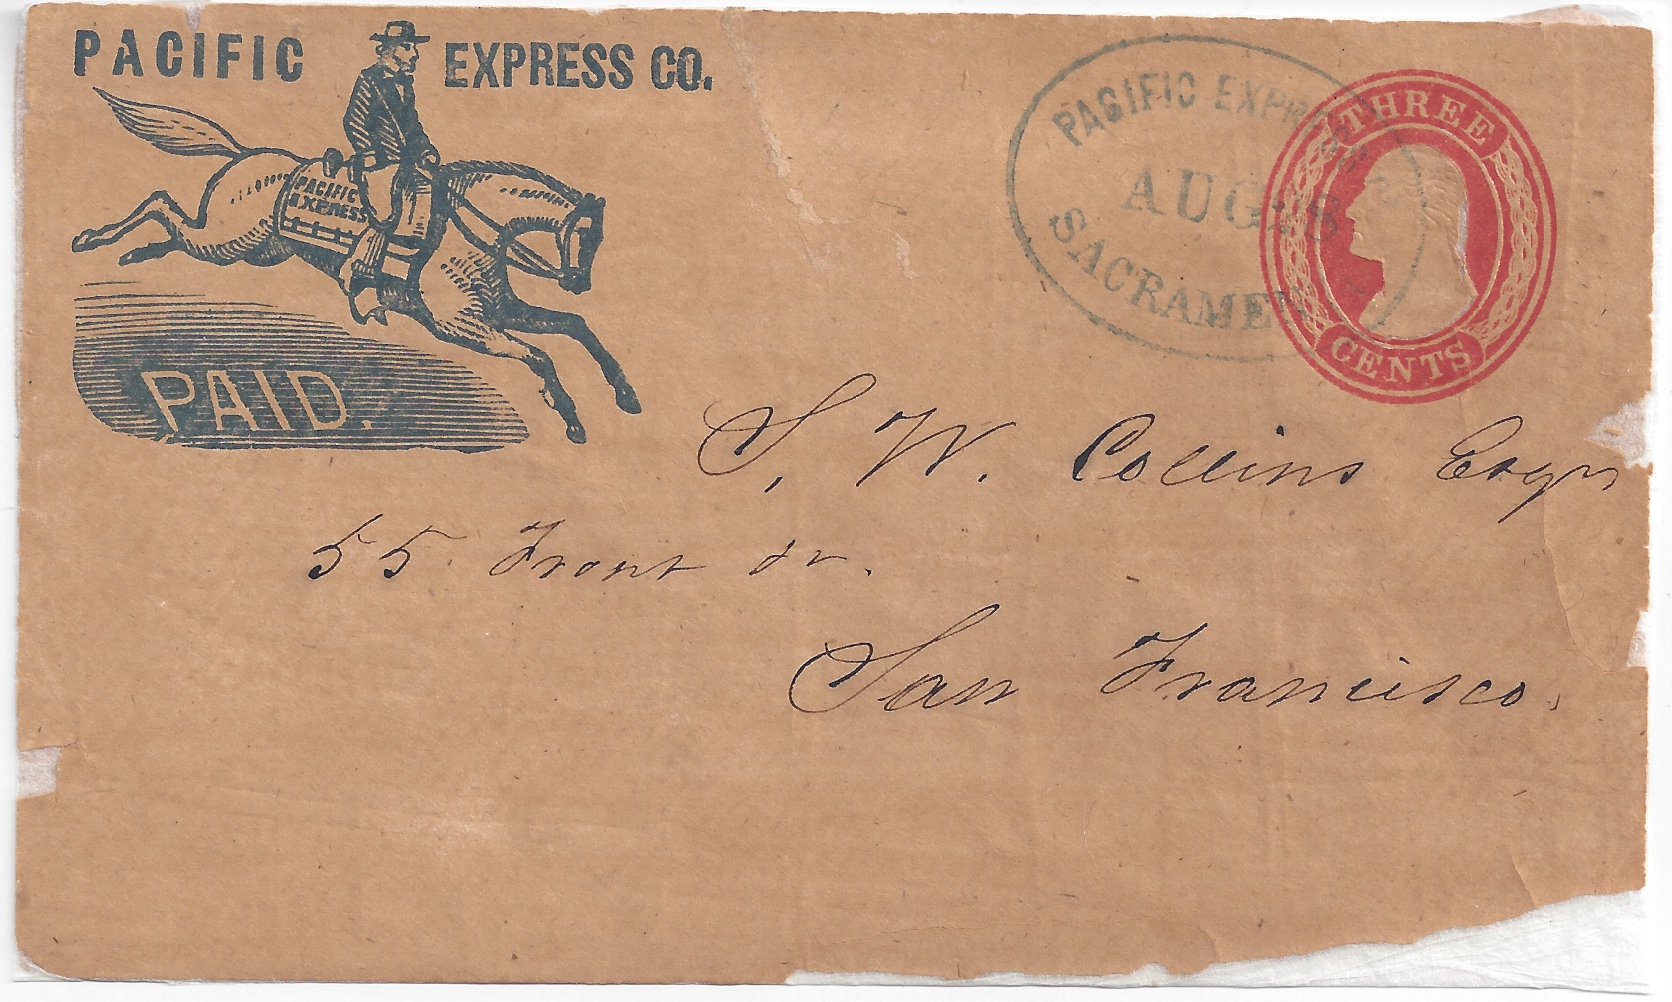 PACIFIC EXPRESS CO.
PACIFIC
EXPRESS
PAID.
PACIFIC EXPRESS
AUG
SACRAMEN
THREE
CENTS
S. W. Collins Esqr
55 Front St.
San Francisco.